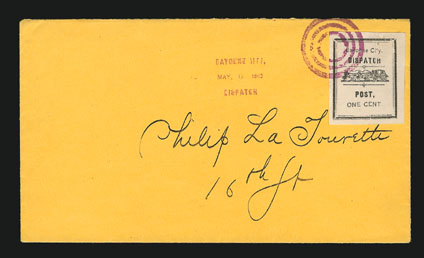 BAYONNE CITY,
DISPATCH
City.
DISPATCH
POST,
ONE CENT.
Philip La Tourette
16th St